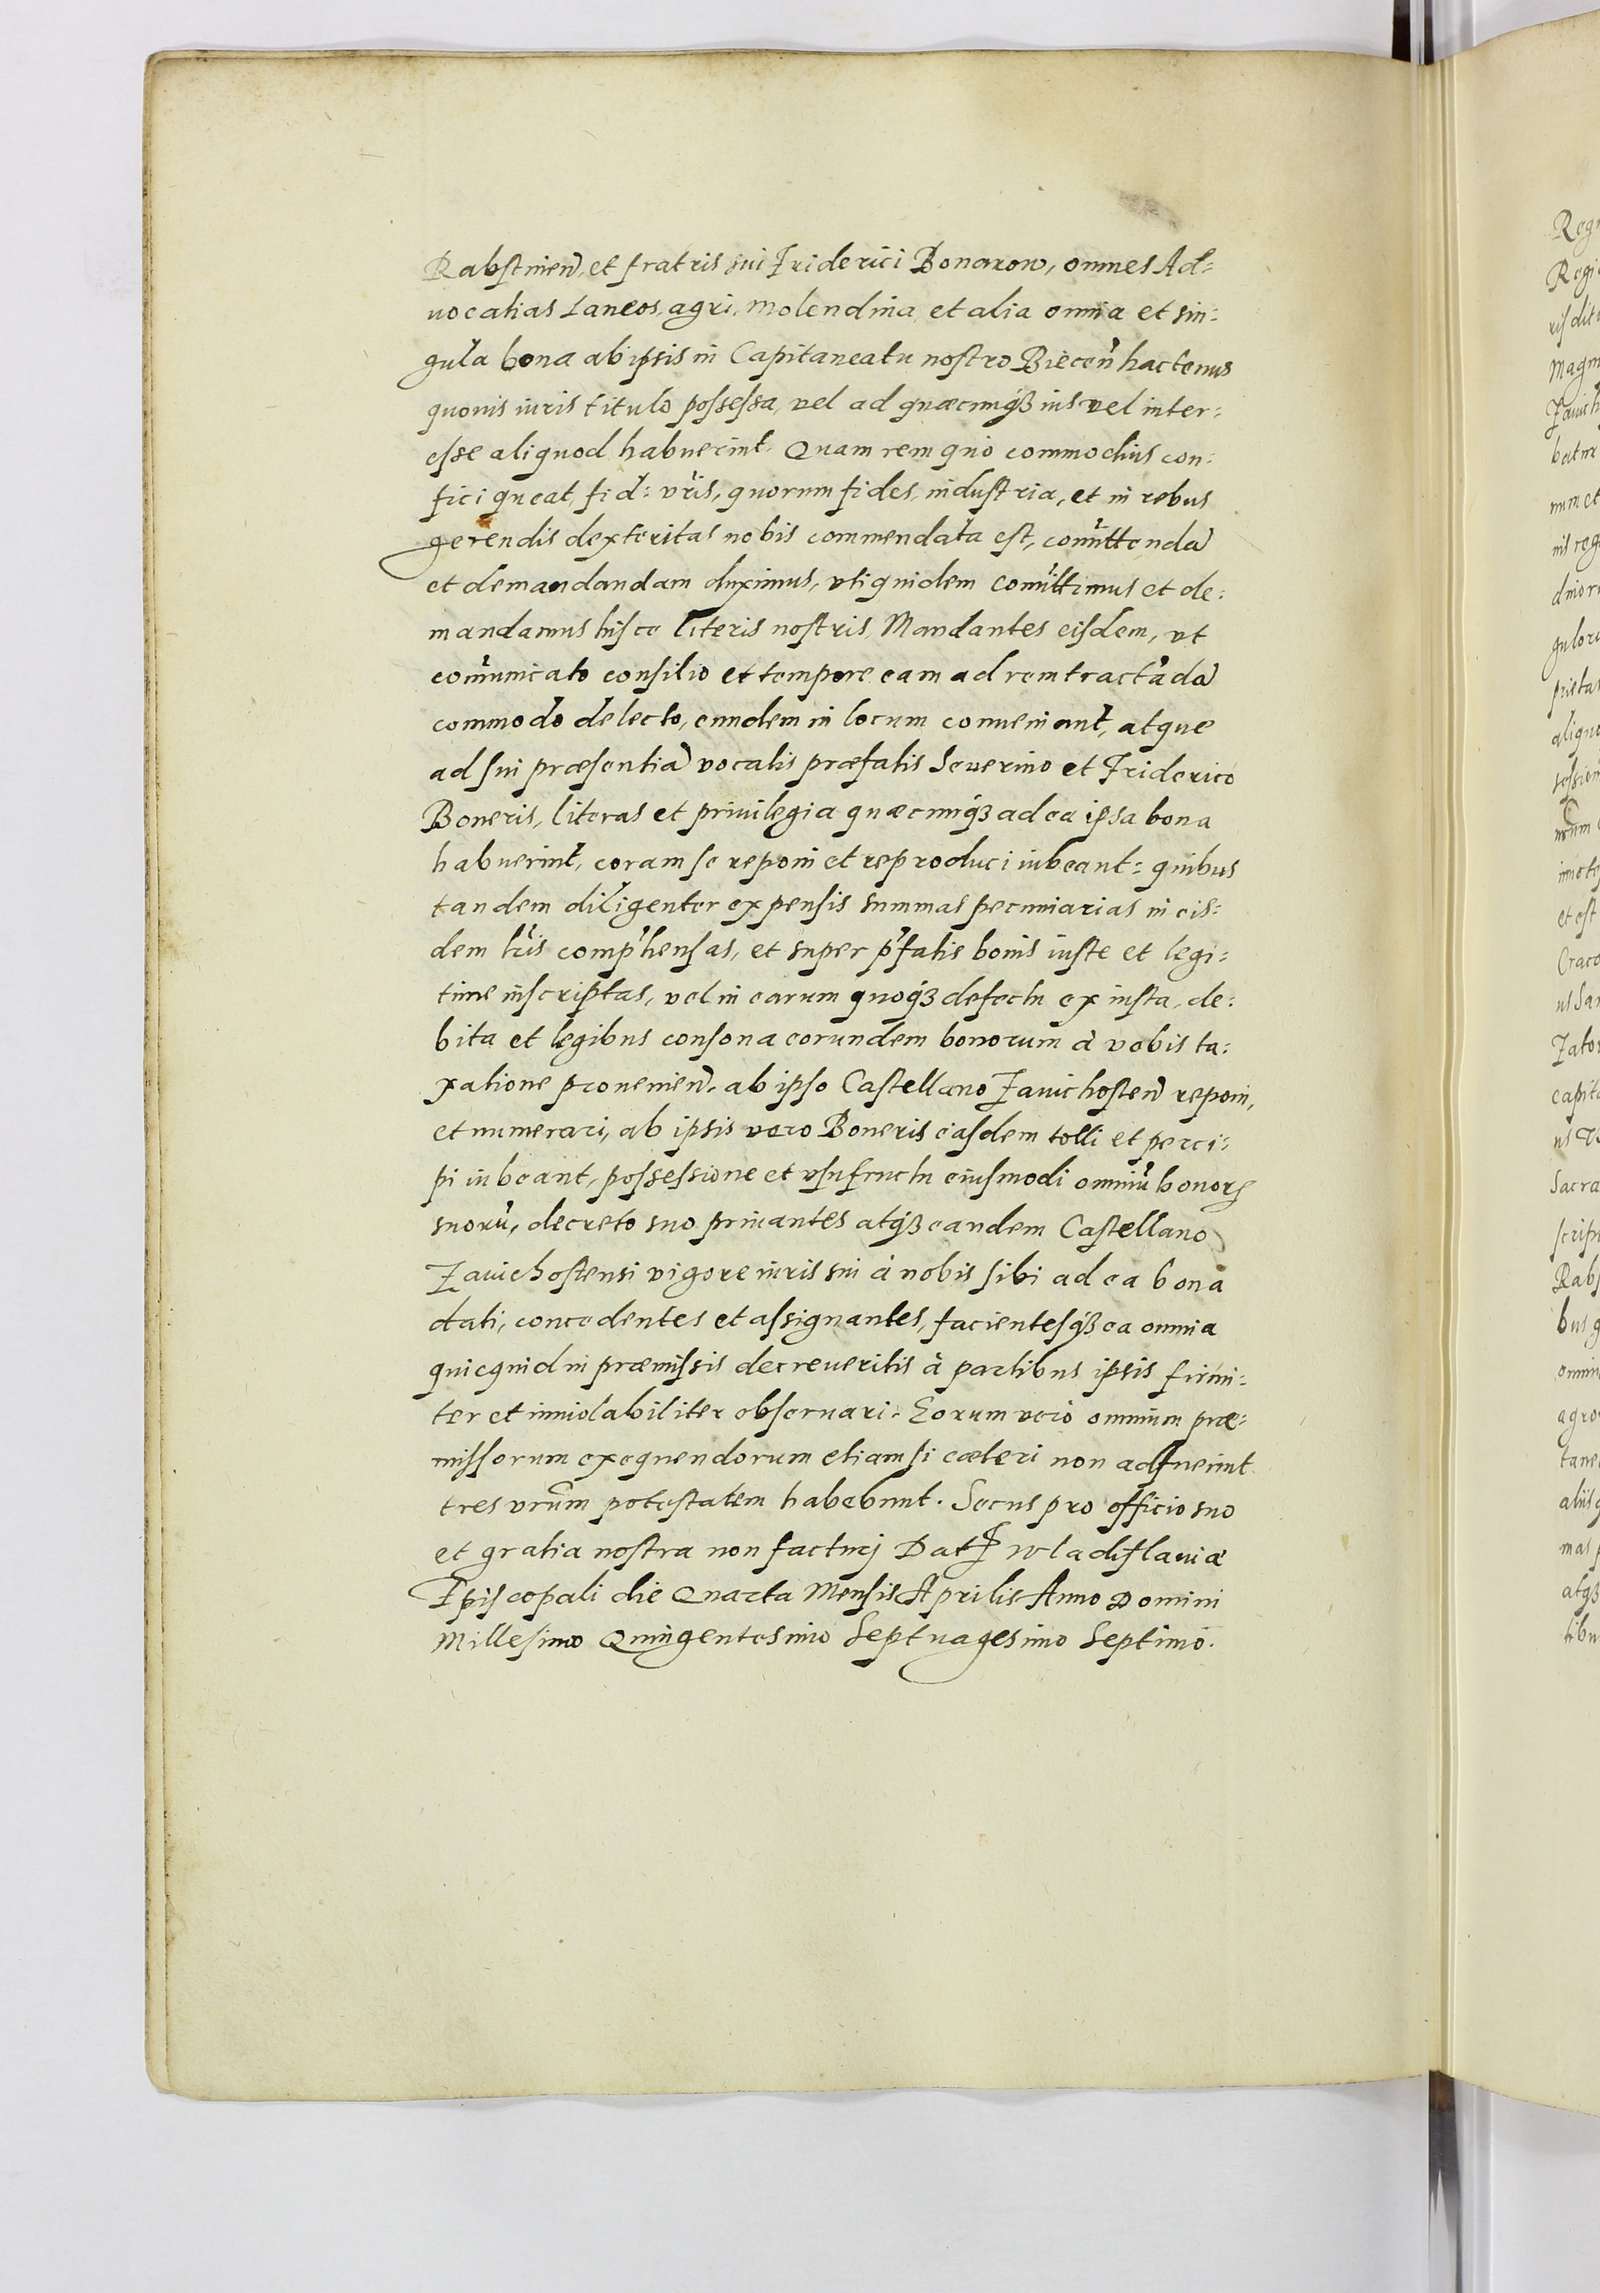 Rabstinen̄, et fratris sui Friderici Bonarow, omnes Ad=
uocatias Laneos, agri, Molendina, et alia omnia et sin=
gula bona ab ipsis in Capitaneatu nostro Biecen̄ hactenus
quouis iuris titulo possessa, vel ad quæcunqȝ ius vel inter=
esse aliquod habuerint. Quam rem quo commodius con=
fici queat, fid: vris, quorum fides, industria, et in rebus
gerendis dexteritas nobis commendata est, com̄ittendā
et demandandam duximus, vti quidem com̄ittimus et de=
mandamus hisce literis nostris, Mandantes eisdem, vt
com̄unicato consilio et tempore eam ad rem tractādā
commodo delecto, eundem in locum conueniant, atque
ad sui præsentiā vocatis præfatis Seuerino et Friderico
Boneris, literas et priuilegia quæcunqȝ ad ea ipsa bona
habuerint, coram se reponi et reproduci iubeant: quibus
tandem diligenter expensis summas pecuniarias in eis=
dem lr̄is comp̄hensas, et super p̄fatis bonis iuste et legi=
time inscriptas, vel in earum quoqȝ defectu ex iusta, de=
bita et legibus consona eorundem bonorum à vobis ta=
xatione prouenien̄. ab ipso Castellano Zauichosten̄ reponi,
et numerari, ab ipsis vero Boneris easdem tolli et perci=
pi iubeant, possessione et vsufructu eiusmodi omniū bonorꝝ
suorū, decreto suo priuantes atqȝ eandem Castellano
Zauichostensi vigore iuris sui à nobis sibi ad ea bona
dati, concedentes et assignantes, facientesqȝ ea omnia
quicquid in præmissis decreueritis à partibus ipsis firmi=
ter et inuiolabiliter obseruari. Eorum vero omnium præ=
missorum exequendorum etiam si cæteri non adfuerint
tres vrūm potestatem habebunt. Secus pro officio suo
et gratia nostra non facturj Datꝭ Wladislauiæ
Episcopali die Quarta Mensis Aprilis Anno Domini
Millesimo Quingentesimo Septuagesimo Septimo.